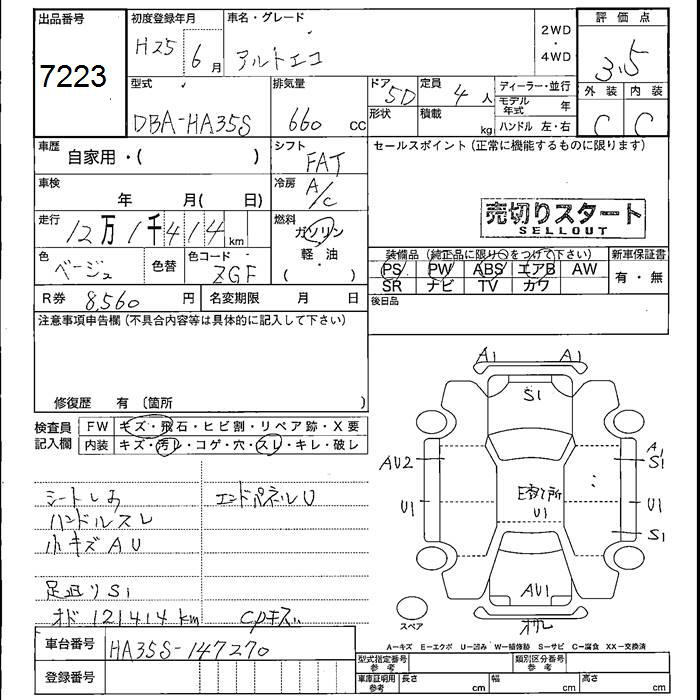 出品番号
7223
初度登録年月
H25 6月
車名・グレード
アルトエコ
2WD
・
4WD
評価点
3.5
型式
DBA-HA35S
排気量
660 cc
ドア
5D
形状
定員
4人
積載
kg
ディーラー・並行
モデル年式 年
ハンドル 左・右
外装 内装
C C
車歴
自家用・( )
シフト
FAT
セールスポイント (正常に機能するものに限ります)
車検
年 月( 日)
冷房
A/C
走行
12万1千414km
燃料
ガソリン
軽・油
( )
売切りスタート
SELLOUT
色
ベージュ
色替
色コード
ZGF
装備品 (純正品に限り○をつけて下さい)
PS PW ABS エアB AW
SR ナビ TV カワ
新車保証書
有・無
R券 8,560 円
名変期限 月 日
後日品
注意事項申告欄 (不具合内容等は具体的に記入して下さい)
修復歴 有 〔箇所 〕
検査員記入欄
FW キズ・飛石・ヒビ割・リペア跡・X要
内装 キズ・汚レ・コゲ・穴・スレ・キレ・破レ
シートしみ
エンドパネルU
ハンドルスレ
小キズAU
足廻りS1
オド 121414km
CPキズ
A1 A1
S1
AU2
A1
S1
U1
U1
U1
S1
AU1
スペア
A−キズ E−エクボ U−凹み W−補修跡 S−サビ C−腐食 XX−交換済
車台番号
HA35S-147270
登録番号
型式指定番号 参考
類別区分番号 参考
車庫証明用 参考
長さ cm
幅 cm
高さ cm